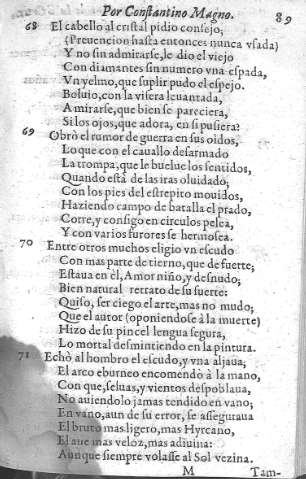 Por Constantino Magno. 89
68 El cabello al cristal pidio consejo,
(Preuencion hasta entonces nunca vsada)
Y no sin admirarse, le dio el viejo
Con diamantes sin numero vna espada,
Vn yelmo, que suplir pudo el espejo.
Boluio, con la visera leuantada,
A mirarse, que bien se pareciera,
Si los ojos, que adora, en si pusiera?
69 Obrò el rumor de guerra en sus oidos,
Lo que con el cauallo desarmado
La trompa, que le buelue los sentidos,
Quando està de las iras oluidado,
Con los pies del estrepito mouidos,
Haziendo campo de batalla el prado,
Corre, y consigo en circulos pelea,
Y con varios furores se hermosea.
70 Entre otros muchos eligio vn escudo
Con mas parte de tierno, que de fuerte;
Estaua en èl, Amor niño, y desnudo;
Bien natural retrato de su suerte:
Quiso, ser ciego el arte, mas no mudo;
Que el autor (oponiendose à la muerte)
Hizo de su pincel lengua segura,
Lo mortal desmintiendo en la pintura.
71 Echò al hombro el escudo, y vna aljaua;
El arco eburneo encomendò à la mano,
Con que, seluas, y vientos despoblaua,
No auiendolo jamas tendido en vano;
En vano, aun de su error, se asseguraua
El bruto mas ligero, mas Hyrcano,
El aue mas veloz, mas adiuina:
Aunque siempre volasse al Sol vezina.
M Tam-